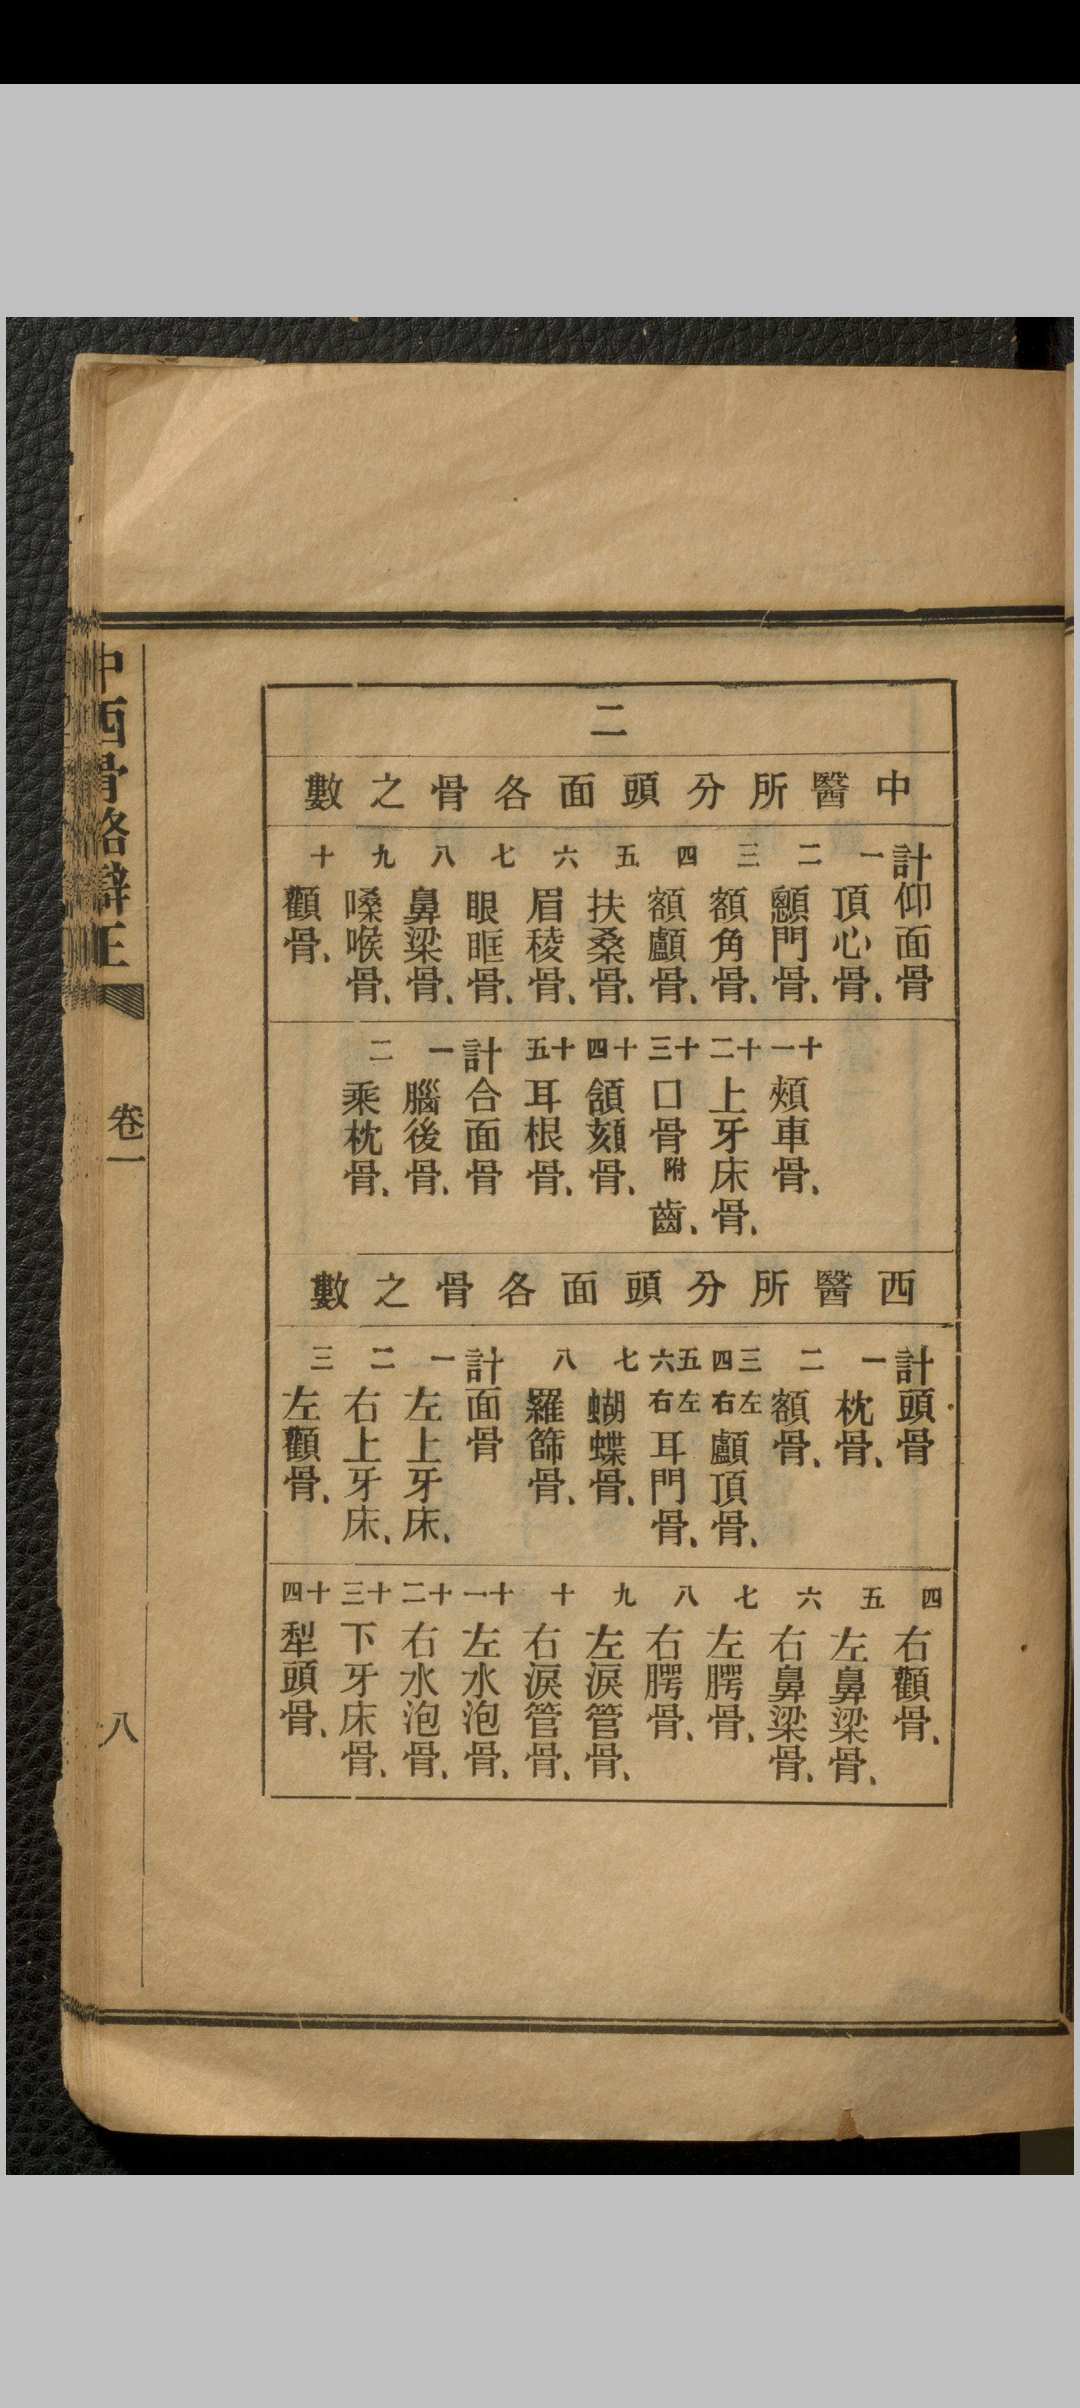 二
中醫所分頭面各骨之數
計仰面骨
一 頂心骨、
二 顖門骨、
三 額角骨、
四 額顱骨、
五 扶桑骨、
六 眉稜骨、
七 眼眶骨、
八 鼻梁骨、
九 嗓喉骨、
十 顴骨、
十一 頰車骨、
十二 上牙床骨、
十三 口骨附齒、
十四 頷頦骨、
十五 耳根骨、
計合面骨
一 腦後骨、
二 乘枕骨、
西醫所分頭面各骨之數
計頭骨
一 枕骨、
二 額骨、
三左四右顱頂骨、
五左六右耳門骨、
七 蝴蝶骨、
八 羅篩骨、
計面骨
一 左上牙床、
二 右上牙床、
三 左顴骨、
四 右顴骨、
五 左鼻梁骨、
六 右鼻梁骨、
七 左腭骨、
八 右腭骨、
九 左淚管骨、
十 右淚管骨、
十一 左水泡骨、
十二 右水泡骨、
十三 下牙床骨、
十四 犁頭骨、
中西骨格辯正
卷一
八